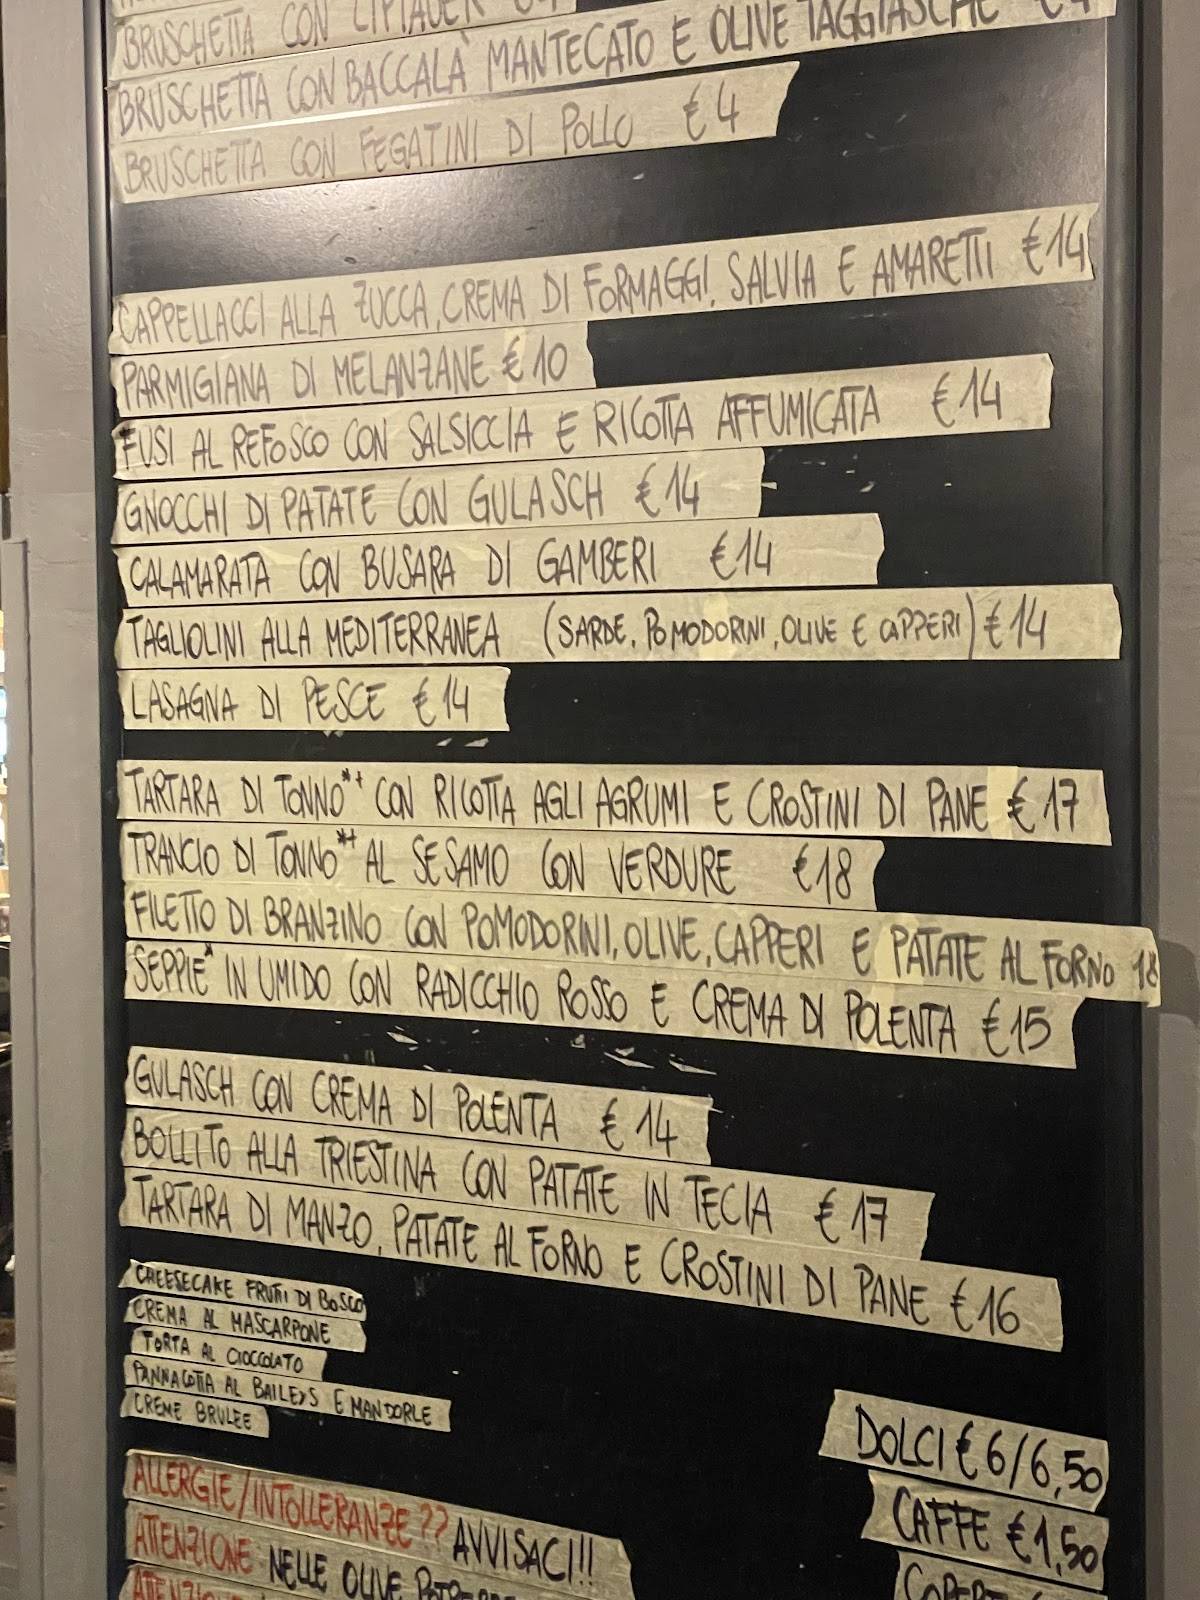 BRUSCHETTA CON LIPTAUER
BRUSCHETTA CON BACCALÀ MANTECATO E OLIVE TAGGIASCHE €4
BRUSCHETTA CON FEGATINI DI POLLO €4
CAPPELLACCI ALLA ZUCCA, CREMA DI FORMAGGI, SALVIA E AMARETTI €14
PARMIGIANA DI MELANZANE €10
FUSI AL REFOSCO CON SALSICCIA E RICOTTA AFFUMICATA €14
GNOCCHI DI PATATE CON GULASCH €14
CALAMARATA CON BUSARA DI GAMBERI €14
TAGLIOLINI ALLA MEDITERRANEA (SARDE, POMODORINI, OLIVE E CAPPERI) €14
LASAGNA DI PESCE €14
TARTARA DI TONNO*+ CON RICOTTA AGLI AGRUMI E CROSTINI DI PANE €17
TRANCIO DI TONNO*+ AL SESAMO CON VERDURE €18
FILETTO DI BRANZINO CON POMODORINI, OLIVE, CAPPERI E PATATE AL FORNO 18
SEPPIE* IN UMIDO CON RADICCHIO ROSSO E CREMA DI POLENTA €15
GULASCH CON CREMA DI POLENTA €14
BOLLITO ALLA TRIESTINA CON PATATE IN TECIA €17
TARTARA DI MANZO, PATATE AL FORNO E CROSTINI DI PANE €16
CHEESECAKE FRUTTI DI BOSCO
CREMA AL MASCARPONE
TORTA AL CIOCCOLATO
PANNACOTTA AL BAILEYS E MANDORLE
CREME BRULEE
DOLCI €6/6,50
CAFFE €1,50
ALLERGIE/INTOLLERANZE?? AVVISACI!!!
ATTENZIONE NELLE OLIVE
ATTENZIONE